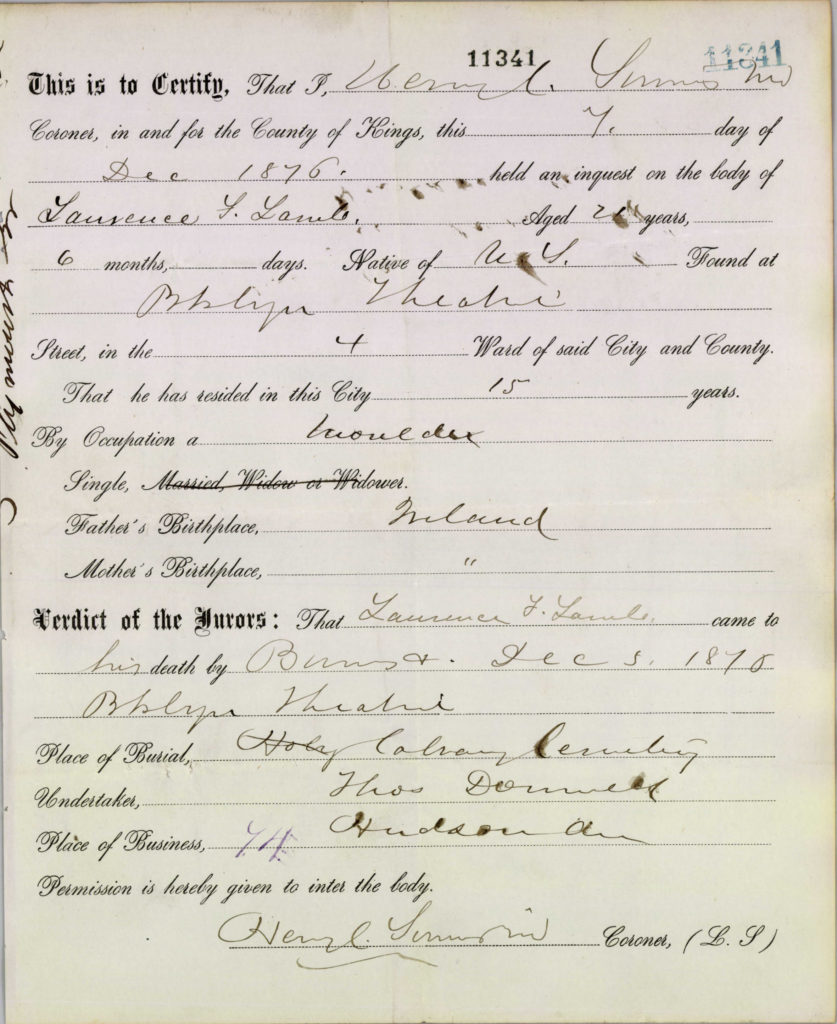 11341 11341
This is to Certify, That I, Henry C. Simms MD
Coroner, in and for the County of Kings, this 7. day of
Dec 1876. held an inquest on the body of
Laurence F. Lamb. Aged years,
6 months, days. Native of U.S. Found at
Bklyn Theatre
Street, in the 4 Ward of said City and County.
That he has resided in this City 15 years.
By Occupation a Moulder
Single, Married, Widow or Widower.
Father's Birthplace, Ireland
Mother's Birthplace, "
Verdict of the Jurors: That Laurence F. Lamb. came to
his death by Burns &. Dec 5. 1876
Bklyn Theatre
Place of Burial, Holy Calvary Cemetery
Undertaker, Thos Donnell
Place of Business, 74 Hudson Av
Permission is hereby given to inter the body.
Henry C. Simms MD Coroner, (L. S)